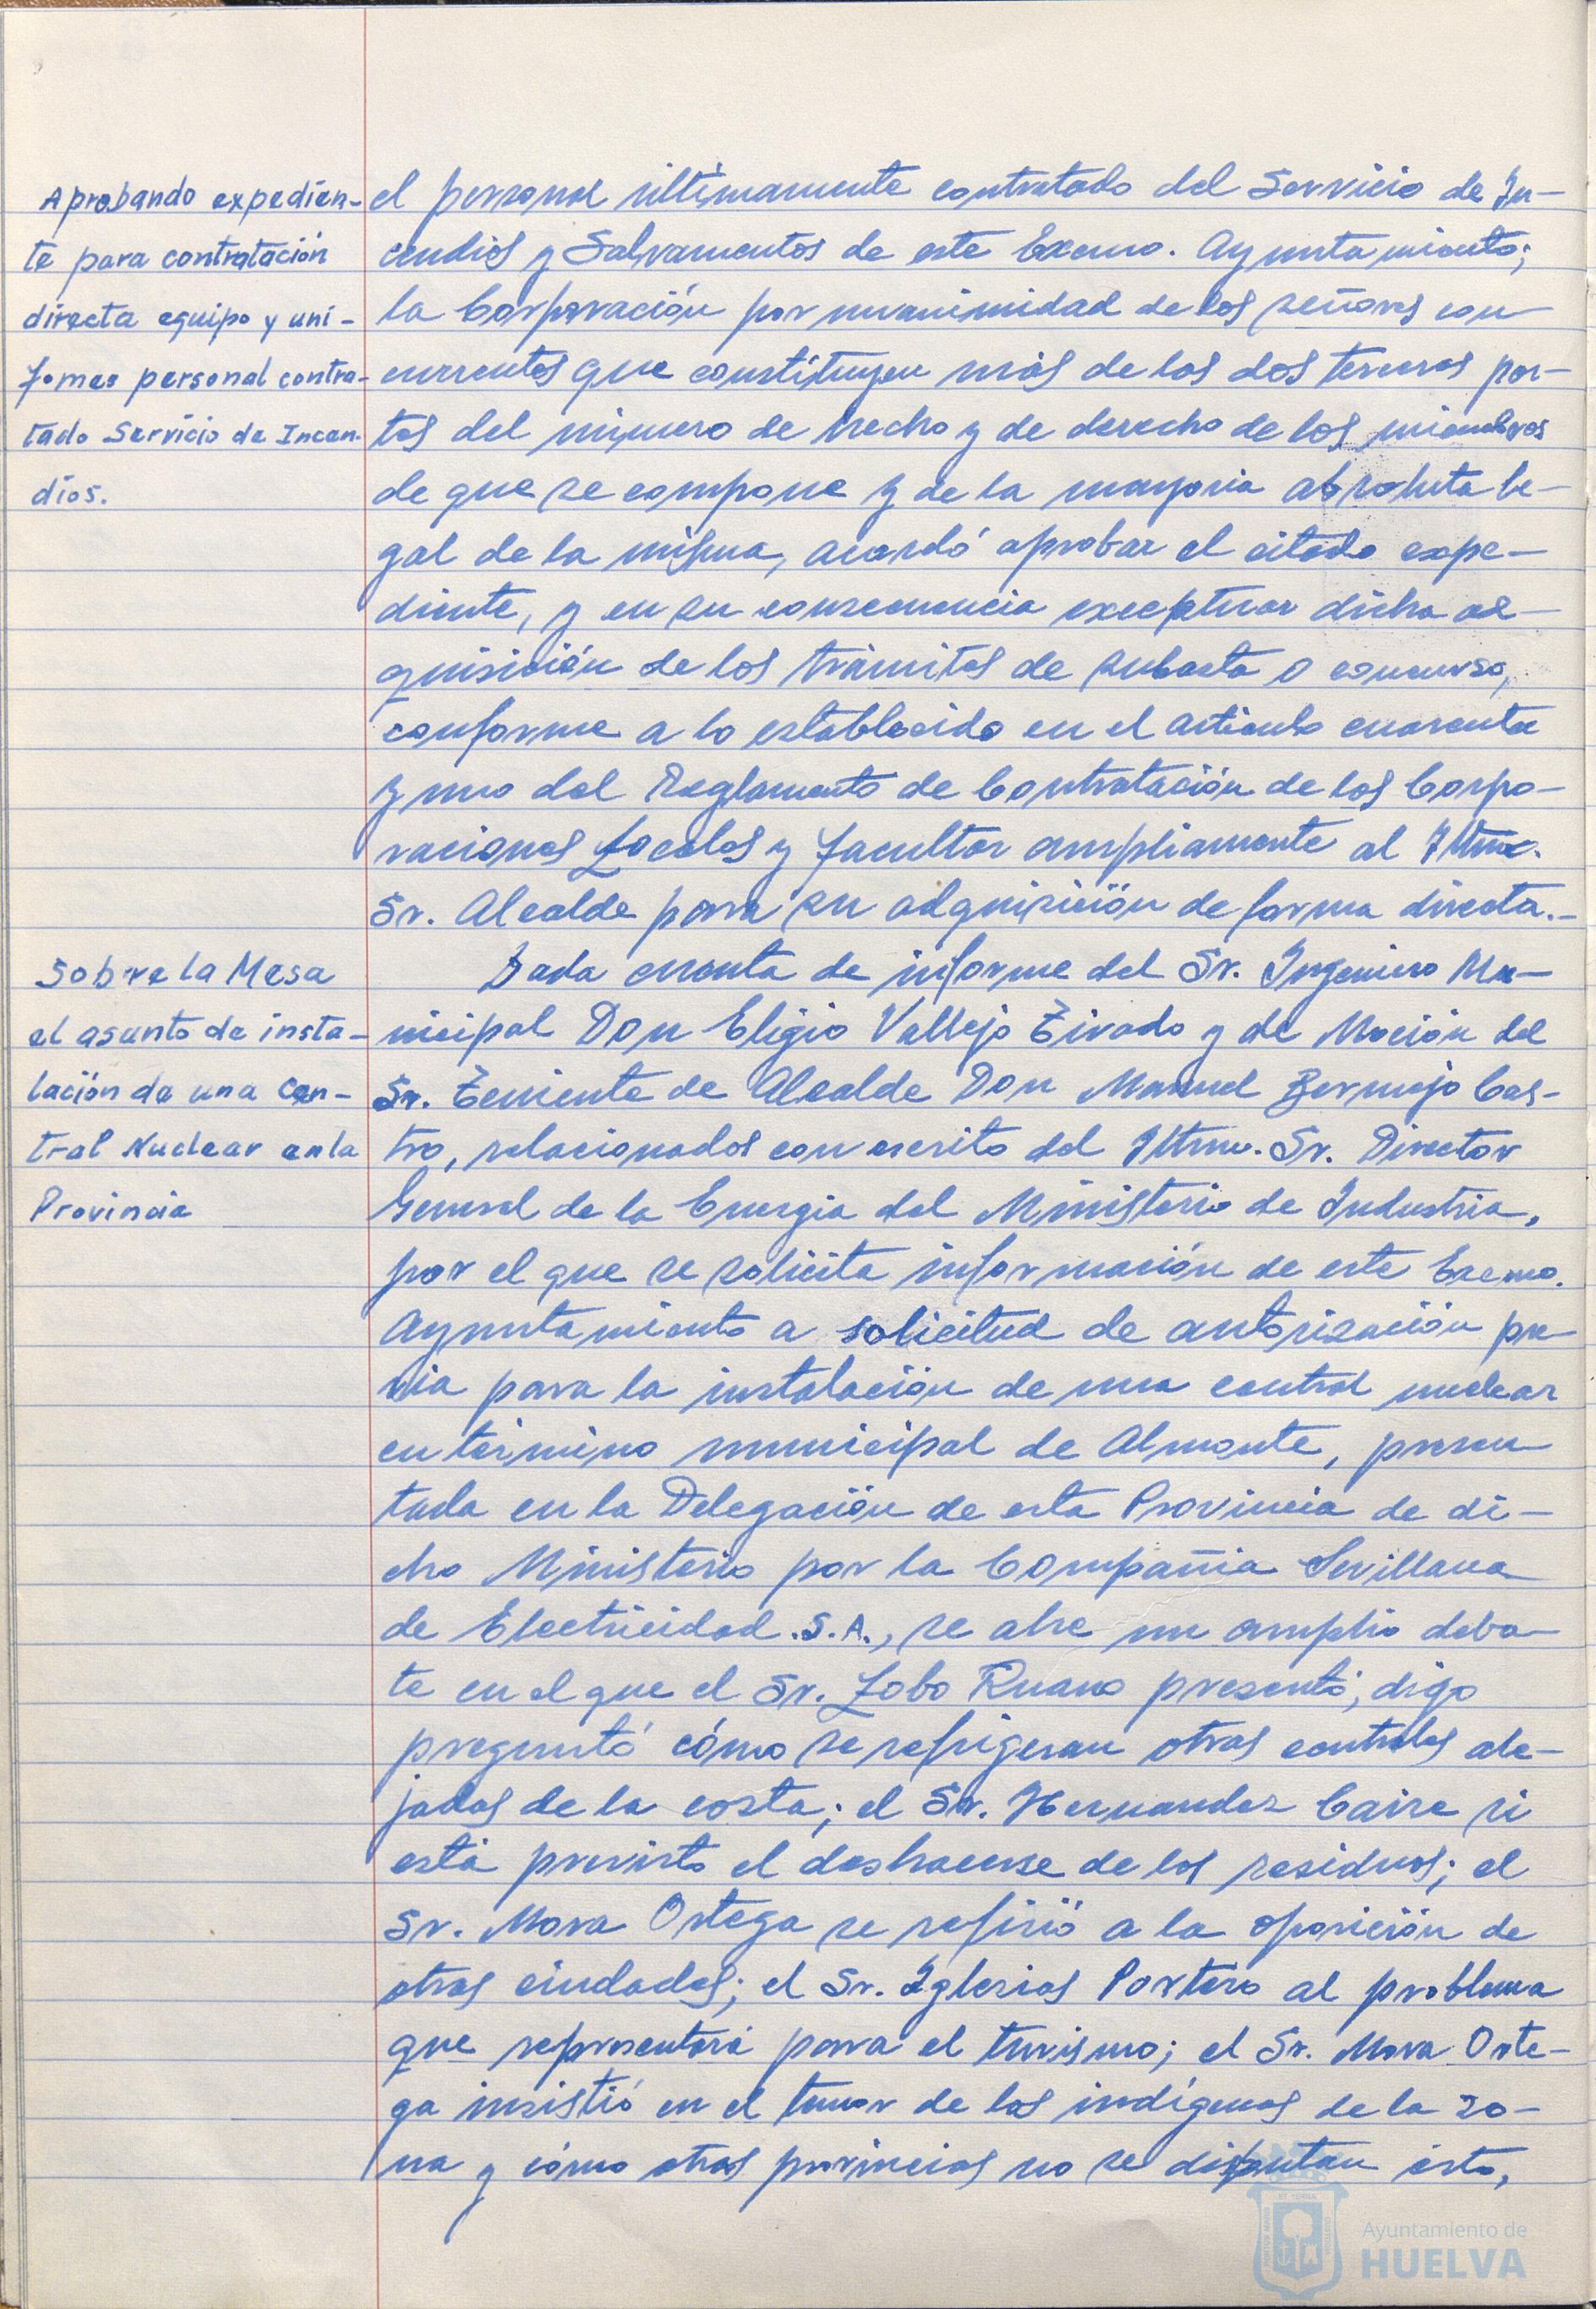 Aprobando expedien-
te para contratación
directa equipo y uni-
fomes personal contra-
tado Servicio de Incen-
dios.
el personal últimamente contratado del Servicio de In-
cendios y Salvamentos de este Excmo. Ayuntamiento;
la Corporación por unanimidad de los señores con
currentes que constituyen más de las dos terceras par-
tes del número de hecho y de derecho de los miembros
de que se compone y de la mayoria absoluta le-
gal de la misma, acordó aprobar el citado expe-
diente, y en su consecuencia exceptuar dicha ad-
quisición de los trámites de subasta o concurso,
conforme a lo establecido en el artículo cuarenta
y uno del Reglamento de Contratación de las Corpo-
raciones Locales y facultar ampliamente al Iltmo.
Sr. Alcalde para su adquisición de forma directa.-
Sobre la Mesa
el asunto de insta-
lación de una Cen-
tral Nuclear en la
Provincia
Dada cuenta de informe del Sr. Ingeniero Mu-
nicipal Don Eligio Vallejo Tirado y de Moción del
Sr. Teniente de Alcalde Don Manuel Bermejo Cas-
tro, relacionados con escrito del Iltmo. Sr. Director
General de la Energia del Ministerio de Industria,
por el que se solicita información de este Excmo.
Ayuntamiento a solicitud de autorización pre
via para la instalación de una central nuclear
en término municipal de Almonte, presen
tada en la Delegación de esta Provincia de di-
cho Ministerio por la Compañia Sevillana
de Electricidad S.A., se abre un amplio deba-
te en el que el Sr. Lobo Ruano presentó, digo
preguntó cómo se refrigeran otras centrales ale-
jadas de la costa; el Sr. Hernandez Caire si
está previsto el deshacerse de los residuos; el
Sr. Mora Ortega se refirió a la oposición de
otras ciudades; el Sr. Iglesias Portero al problema
que representará para el turismo; el Sr. Mora Orte-
ga insistió en el temor de los indígenas de la zo-
na y cómo otras provincias no se disputan ésto,
Ayuntamiento de
HUELVA